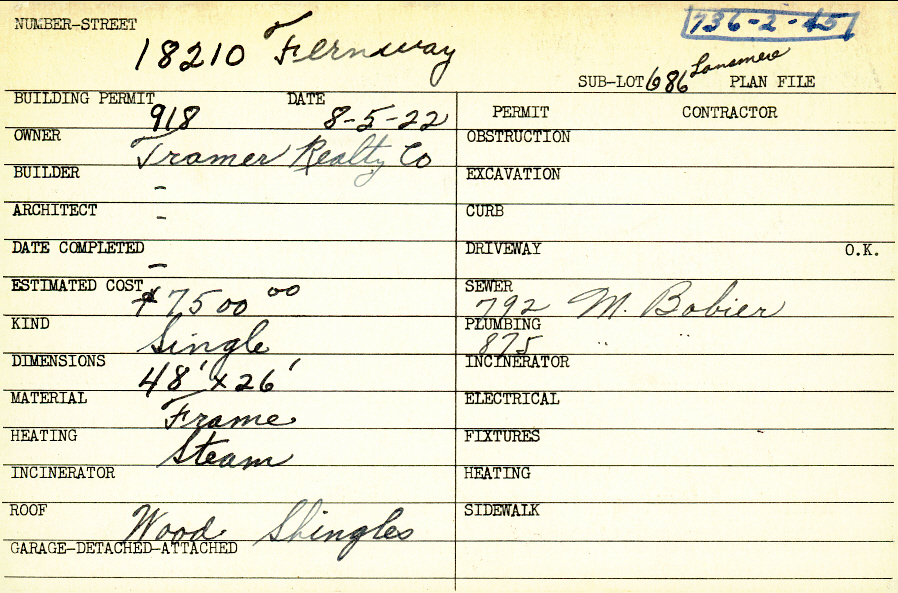 NUMBER-STREET
736-2-45
18210 Fernway
SUB-LOT 686 PLAN FILE
BUILDING PERMIT 918 DATE 8-5-22
PERMIT CONTRACTOR
OWNER Tramer Realty Co
OBSTRUCTION
BUILDER -
EXCAVATION
ARCHITECT -
CURB
DATE COMPLETED -
DRIVEWAY O.K.
ESTIMATED COST $7500 00
SEWER 792 M. Bobier
KIND Single
PLUMBING 875 " "
DIMENSIONS 48' x 26'
INCINERATOR
MATERIAL Frame
ELECTRICAL
HEATING Steam
FIXTURES
INCINERATOR
HEATING
ROOF Wood Shingles
SIDEWALK
GARAGE-DETACHED-ATTACHED